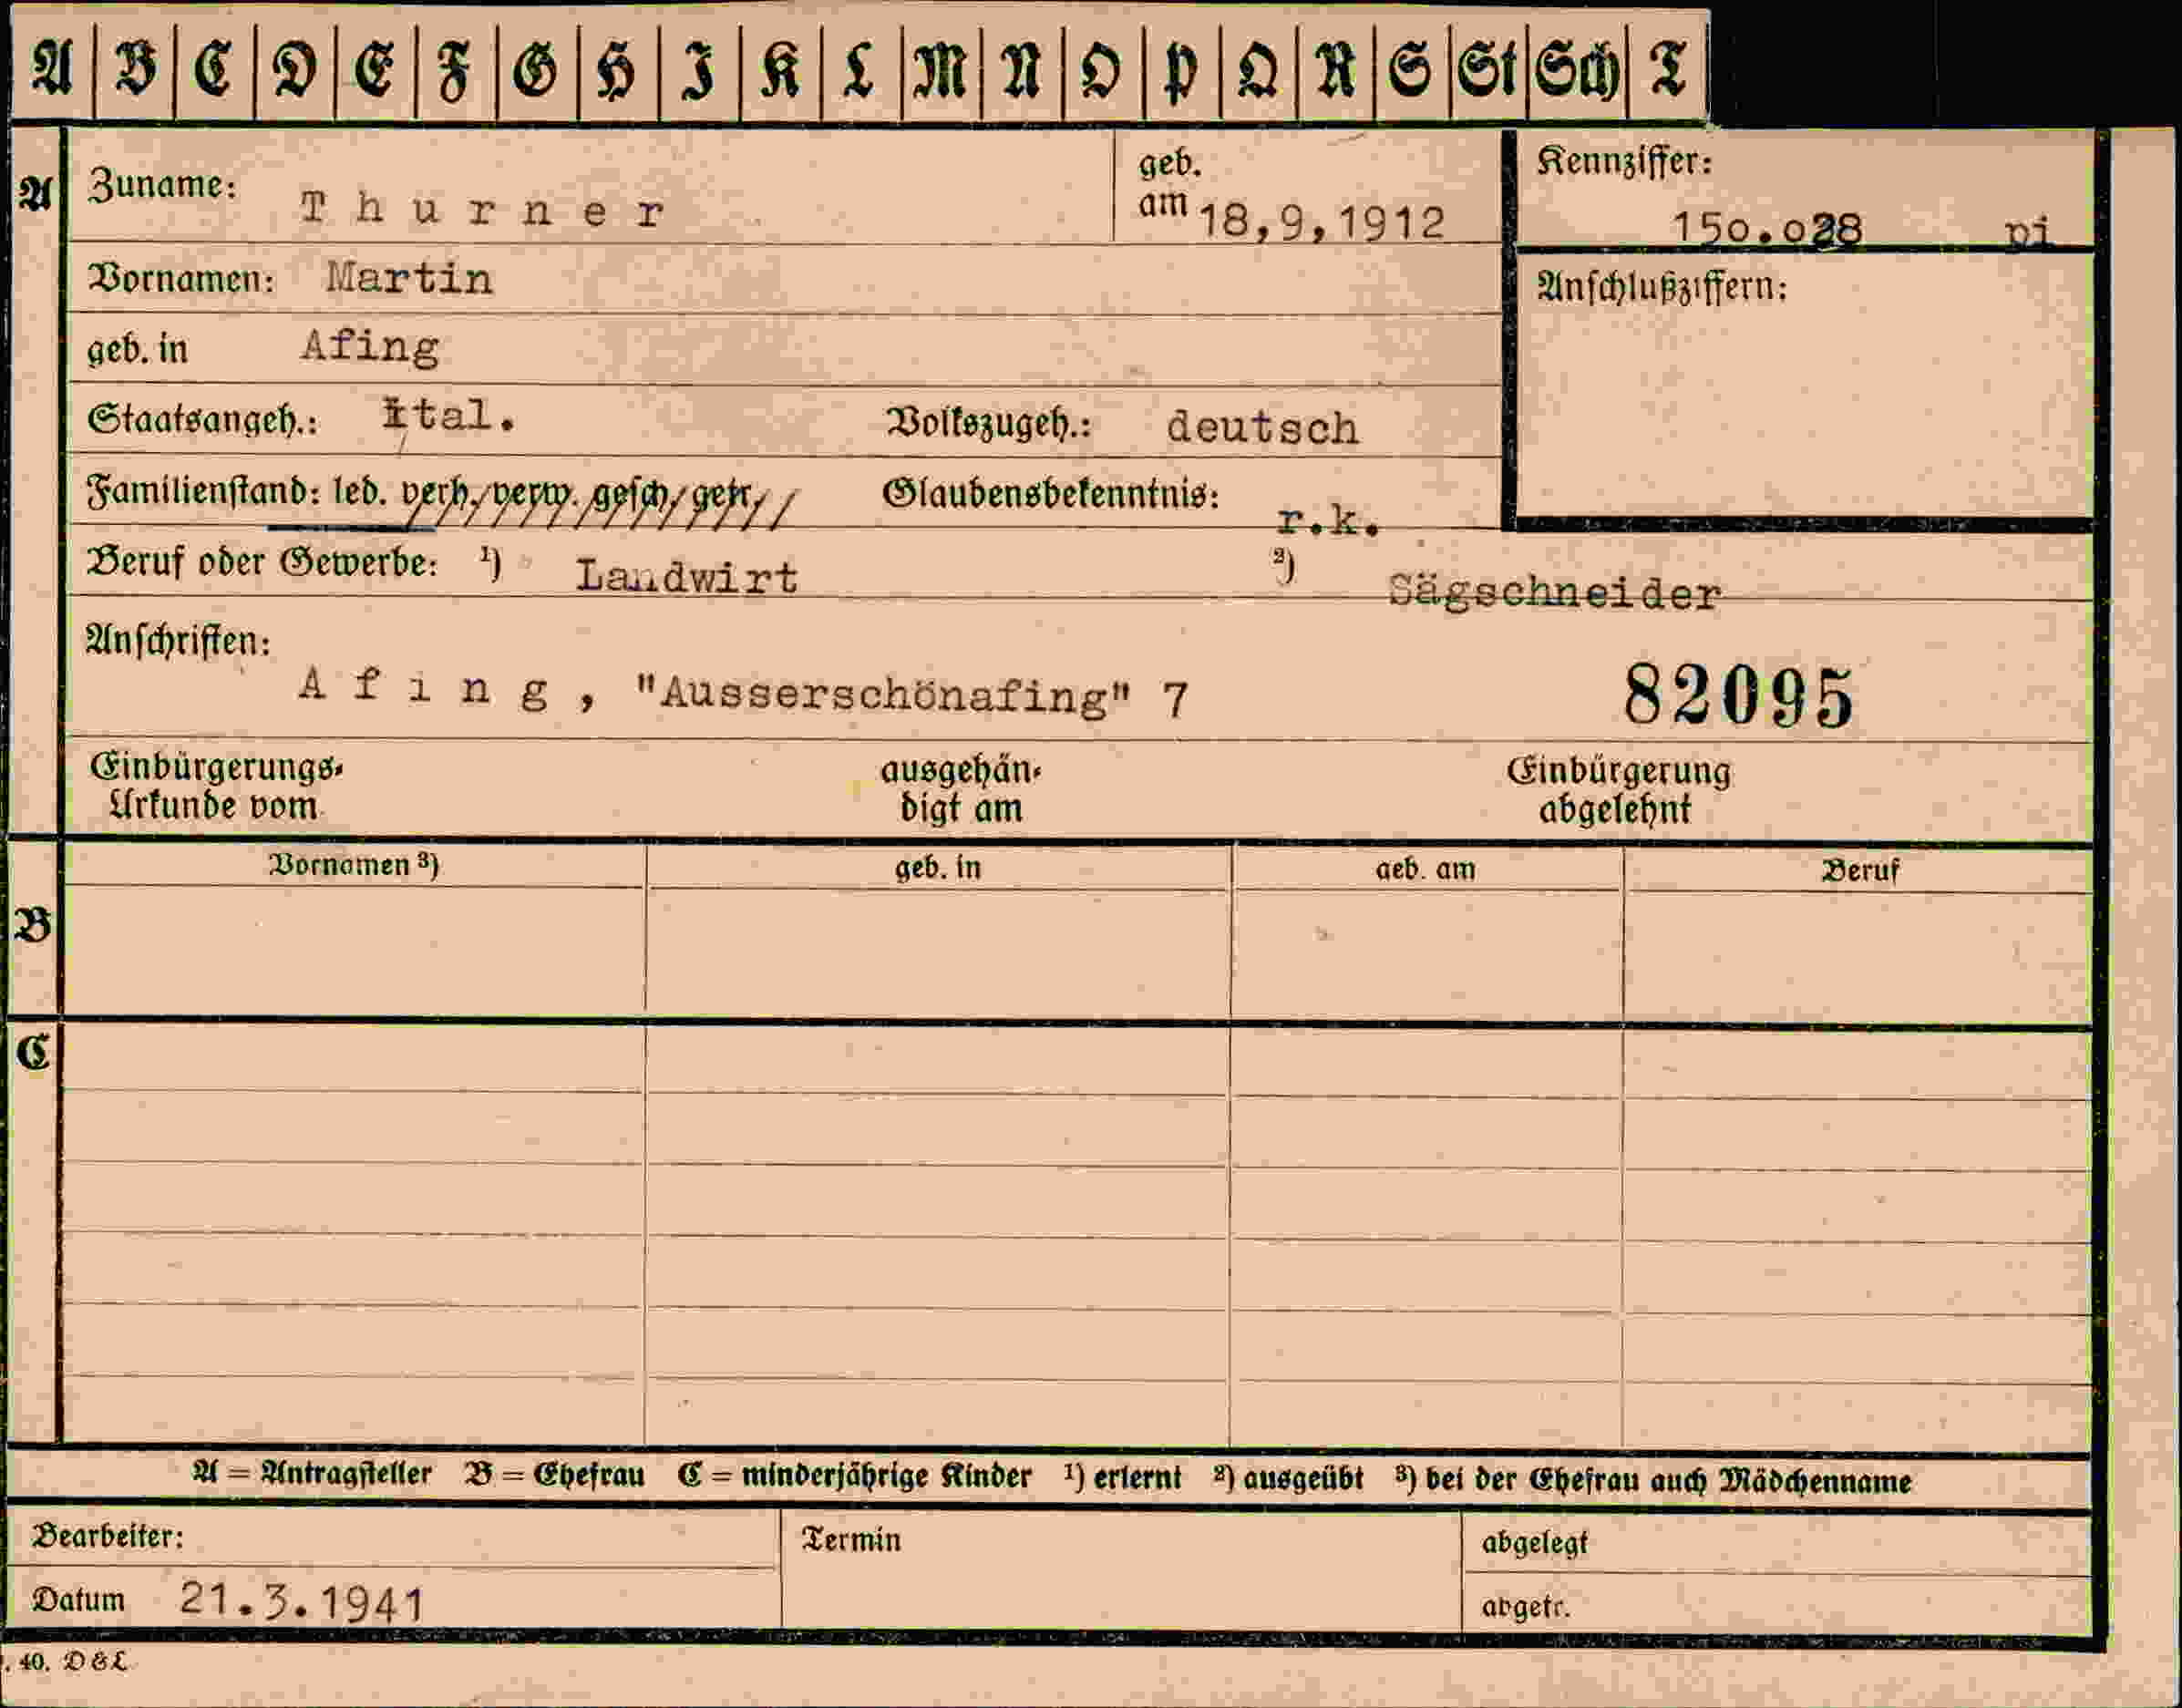 A B C D E F G H I K L M N O P Q R S St Sch T
A Zuname: Thurner geb. am 18,9,1912 Kennziffer: 150.028 pi
Vornamen: Martin Anschlußziffern:
geb. in Afing
Staatsangeh.: Ital. Volkszugeh.: deutsch
Familienstand: led. verh. verw. gesch. getr. Glaubensbekenntnis: r.k.
Beruf oder Gewerbe: ¹) Landwirt ²) Sägschneider
Anschriften:
Afing, "Ausserschönafing" 7 82095
Einbürgerungs-
Urkunde vom
ausgehän-
digt am
Einbürgerung
abgelehnt
Vornamen ³) geb. in geb. am Beruf
B
C
A = Antragsteller B = Ehefrau C = minderjährige Kinder ¹) erlernt ²) ausgeübt ³) bei der Ehefrau auch Mädchenname
Bearbeiter: Termin abgelegt
Datum 21.3.1941 abgetr.
. 40. D & L